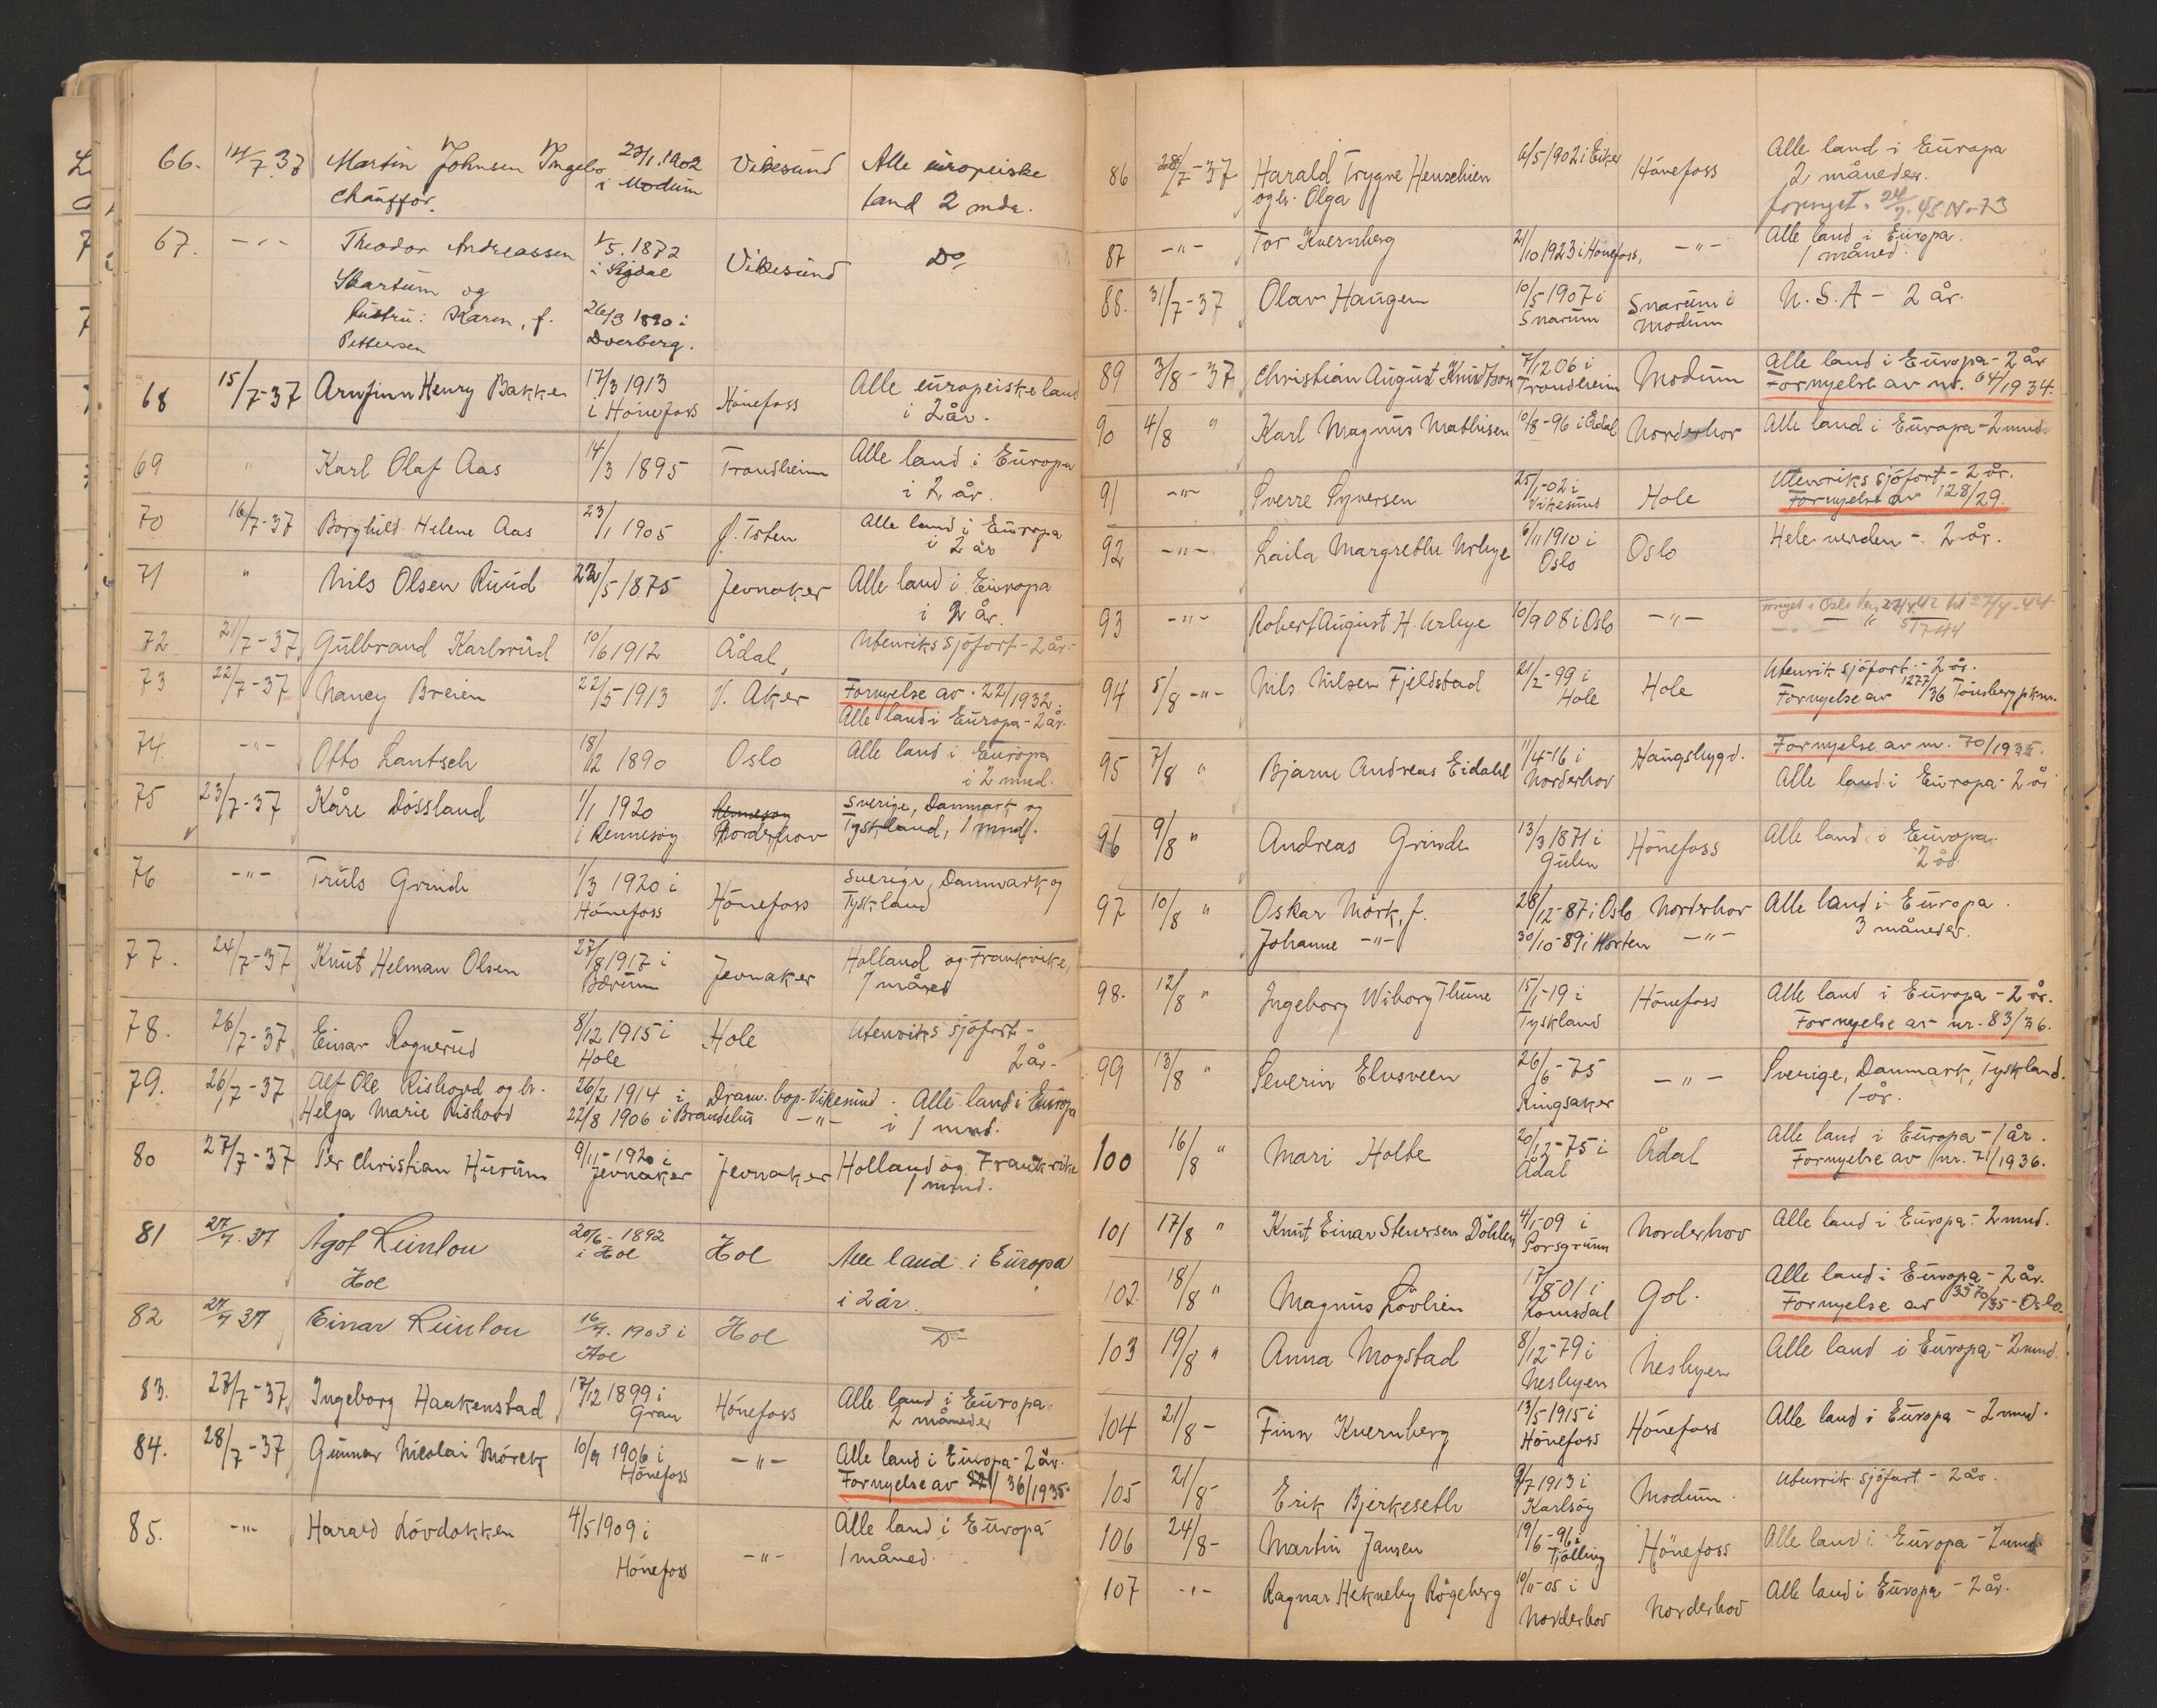 66. 14/7.37 Martin Johnsen Ingebo 23/1.1902 Vikesund Alle europeiske
chauffør. i Modum land 2 mdr.
67. -"- Theodor Andreassen 1/5.1872 Vikesund Do
Skartum og i Sigdal
hustru: Karen, f. 26/3 1890 i
Pettersen Dverberg.
68 15/7-37 Arnfinn Henry Bakke 17/3 1913 Hönefoss Alle europeiske land
i Hönefoss i 2 år.
69 " Karl Olaf Aas 14/3 1895 Trondheim Alle land i Europa
i 2 år.
70 16/7-37 Borghild Helene Aas 23/1 1905 Ö. Toten Alle land i Europa
i 2 år
71 " Nils Olsen Ruud 22/5 1875 Jevnaker Alle land i Europa
i 2 år.
72 21/7-37 Gulbrand Karlsrud 10/6 1912 Ådal Utenriks sjöfart - 2 år.
73 22/7-37 Nancy Breien 22/5 1913 V. Aker Fornyelse av 22/1932.
Alle land i Europa - 2 år.
74. -"- Otto Lantsch 18/12 1890 Oslo Alle land i Europa
i 2 mnd.
75 23/7-37 Kåre Dössland 1/1 1920 Rennesöy Sverige, Danmark og
i Rennesöy Norderhov Tyskland, 1 mnd.
76 -"- Truls Grinde 1/3 1920 i Hönefoss Sverige, Danmark og
Hönefoss Tyskland
77. 24/7-37 Knut Helman Olsen 27/8 1917 i Jevnaker Holland og Frankrike,
Bærum 1 måned
78. 26/7-37 Einar Rognerud 8/12 1915 i Hole Utenriks sjöfart -
Hole 2 år.
79. 26/7-37 Alf Ole Rishovd og hr. 26/2 1914 i Dram. bop. Vikesund. Alle land i Europa
Helga Marie Rishovd 22/8 1906 i Brandbu -"- i 1 mnd.
80 27/7-37 Per Christian Hurum 9/11-1920 i Jevnaker Holland og Frankrike
Jevnaker 1 mnd.
81 27/7.37 Ågot Lunlou 20/6-1892 Hol Alle land i Europa
Hol i Hol i 2 år.
82 27/7 37 Einar Lunlou 16/7.1903 i Hol Do
Hol
83. 28/7-37 Ingeborg Haakenstad 17/12 1899 i Hönefoss Alle land i Europa.
Gran 2 måneder
84. 28/7-37 Gunnar Nicolai Mörck 10/9 1906 i -"- Alle land i Europa - 2 år.
Hönefoss Fornyelse av 36/1935
85. -"- Harald Lövdokken 4/5 1909 i -"- Alle land i Europa
Hönefoss 1 måned.
86 28/7-37 Harald Trygve Henschien 6/5 1902 i Eiker Hönefoss Alle land i Europa
og hr. Olga 2 måneder.
fornyet. 24/7.45 Nr 73
87 -"- Tor Kvernberg 21/10 1923 i Hönefoss, -"- Alle land i Europa.
1 måned.
88. 31/7-37 Olav Haugen 10/5 1907 i Snarum i U.S.A - 2 år.
Snarum Modum
89 3/8-37 Christian August Knudtson 7/12 06 i Modum Alle land i Europa - 2 år
Trondheim Fornyelse av nr. 64/1934.
90 4/8 " Karl Magnus Mathisen 10/8-96 i Ådal Norderhov Alle land i Europa - 2 mnd.
91 -"- Sverre Syversen 25/1-02 i Hole Utenriks sjöfart - 2 år.
Vikesund Fornyelse av 128/29.
92 -"- Laila Margrethe Urbye 6/11 1910 i Oslo Hele verden - 2 år.
Oslo
93 -"- Robert August H. Urbye 10/9 08 i Oslo -"-
94 5/8 -"- Nils Nilsen Fjeldstad 21/2-99 i Hole Utenrik sjöfart - 2 år.
Hole Fornyelse av 1277/36 Tönsberg pkm.
95 7/8 " Bjarne Andreas Eidahl 11/4-16 i Haugsbygd. Fornyelse av nr. 70/1935.
Norderhov Alle land i Europa - 2 år
96 9/8 " Andreas Grinde 13/3 1871 i Hönefoss Alle land i Europa.
Gulen 2 år.
97 10/8 " Oskar Mörk, f. 28/12-87 i Oslo Norderhov Alle land i Europa.
Johanne -"- 30/10-89 i Horten -"- 3 måneder.
98. 12/8 " Ingeborg Wiborg Thune 15/1-19 i Hönefoss Alle land i Europa - 2 år.
Tyskland Fornyelse av nr. 83/36.
99 13/8 " Severin Elvsveen 26/6-75 -"- Sverige, Danmark, Tyskland.
Ringsaker 1 år.
100 16/8 " Mari Holte 20/12-75 i Ådal Alle land i Europa - 1 år.
Ådal Fornyelse av nr. 71/1936.
101 17/8 " Knut Einar Stenersen Döhlen 4/1-09 i Norderhov Alle land i Europa - 2 mnd.
Porsgrunn
102. 18/8 " Magnus Lövlien 17/8 01 i Gol. Alle land i Europa - 2 år.
Romsdal Fornyelse av 3570/35 - Oslo.
103 19/8 " Anna Mogstad 8/12-79 i Nesbyen Alle land i Europa - 2 mnd.
Nesbyen
104 21/8- Finn Kvernberg 13/5 1915 i Hönefoss Alle land i Europa - 2 mnd.
Hönefoss
105 21/8- Erik Bjerkeseth 9/7 1913 i Modum. Utenrik sjöfart - 2 år.
Karlsöy
106 24/8- Martin Jansen 19/6-96 i Hönefoss Alle land i Europa - 2 mnd.
Tjölling
107 -"- Ragnar Hekneby Rögeberg 10/11-05 i Norderhov Alle land i Europa - 2 år.
Norderhov